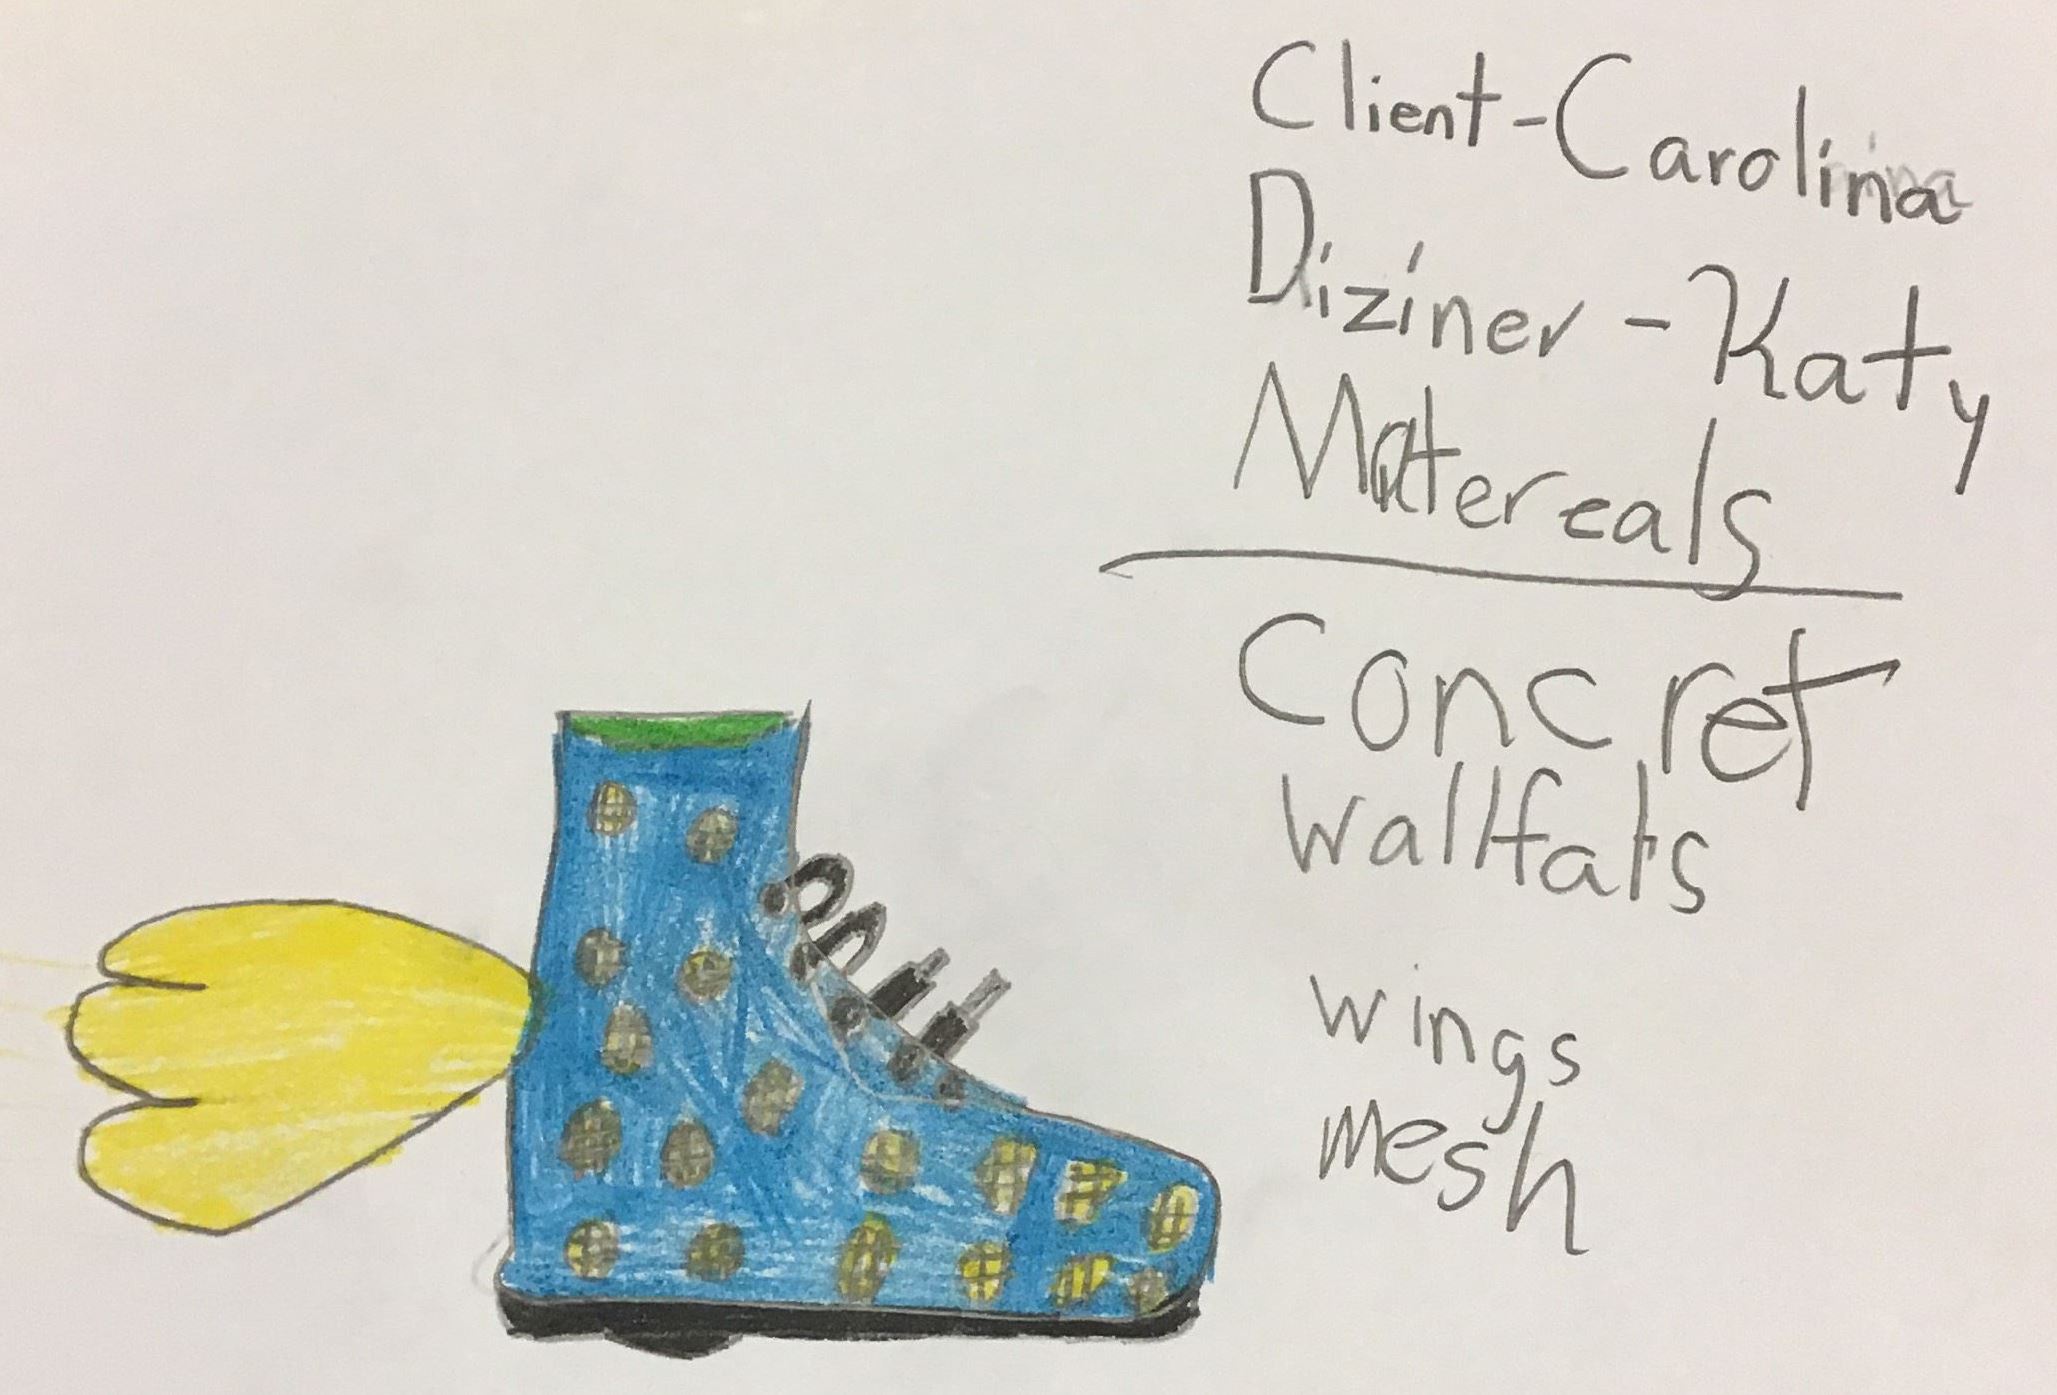 Client-Carolina
Diziner - Katy
Matereals
Concret
Wallfats
wings
mesh